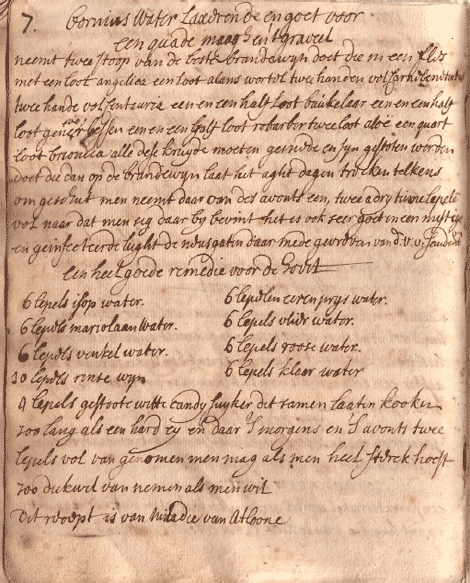 7. Water Laxerende en goet voor
een quade maagh en t graveel
neemt twee stoop van de beste brandewijn doet die in een fles
met een loot angelica een loot alans wortel twee handen vol
twee hande vol sentauria een en een half loot een en een half
loot bessen een en een half loot robarber twee loot aloe een quart
loot brionica alle dese kruyde moeten gesneden en syn gestoten worden
doet die dan op de brandewyn laat het aght dagen trecken telkens
om geschut men neemt daar van des avonts een, twee a dry lepels
vol naar dat men sig daar by bevint het is ook seer goet in een
en geinfecteerde lught de neusgaten daar mede gewreven van d. v. v.
een heel goede remedie voor de
6 lepels isop water. 6 lepelen eerenprys water.
6 lepels mariolaan water. 6 lepels vlier water.
6 lepels venkel water. 6 lepels roose water.
10 lepels rinse wyn 6 lepels klaer water
9 lepels gestoote witte candy suyker dit samen laaten kooken
zoo lang als een hard ey en daar s morgens en s avonts twee
lepels vol van genomen men mag als men heel sterck hoest
zoo dickwil van nemen als men wil
dit recept is van miladie van Atloone